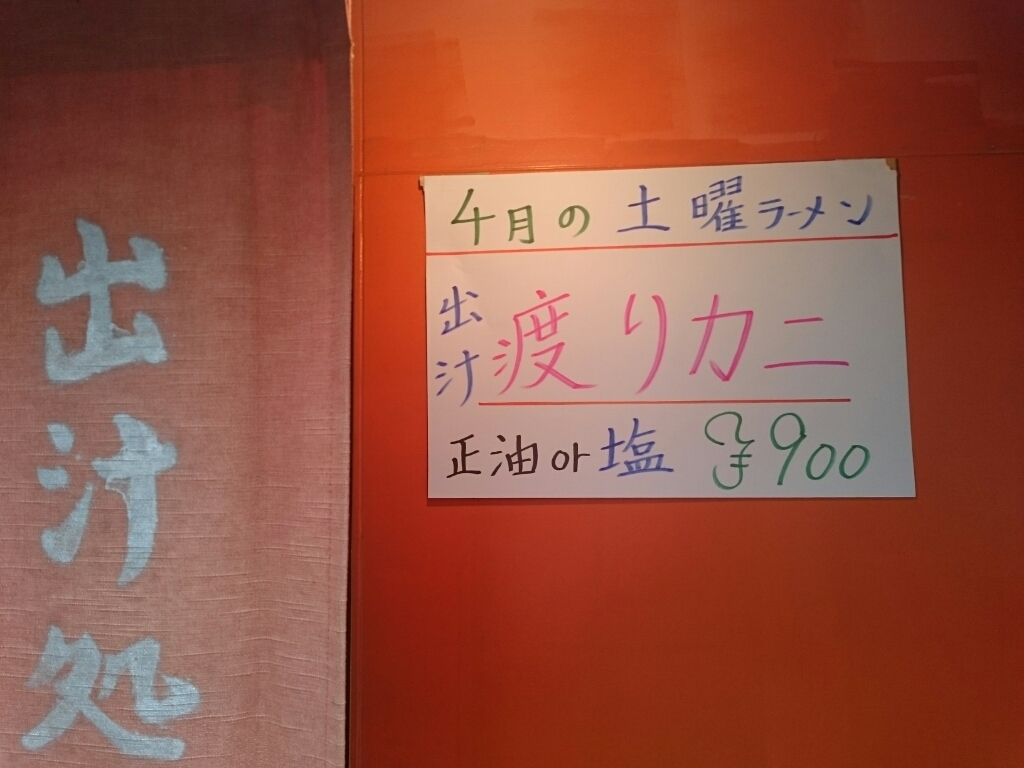 出汁処
4月の土曜ラーメン
出汁渡りカニ
正油or塩 ¥900